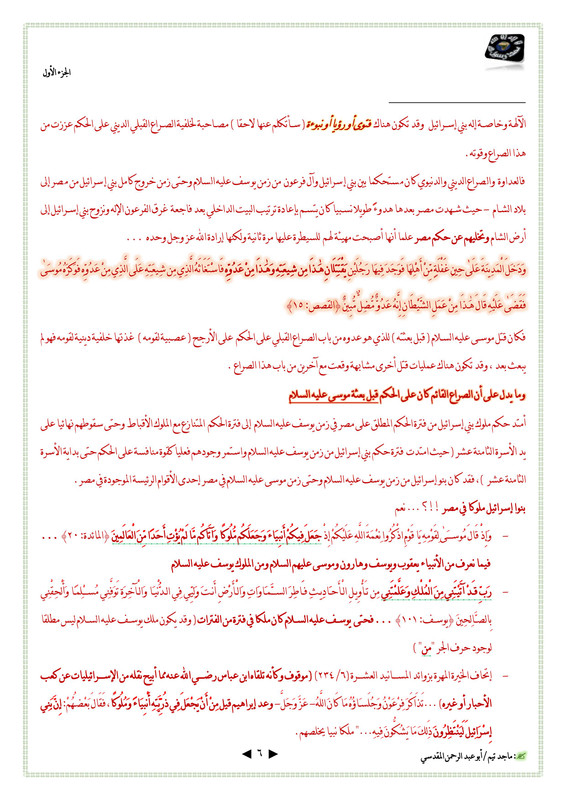 الجزء الأول
الآلهة وخاصة إله بني إسرائيل وقد تكون هناك فتوى أو رؤيا أو نبوءة ( سأتكلم عنها لاحقا ) مصاحبة لخلفية الصراع القبلي الديني على الحكم عززت من
هذا الصراع وقوته .
فالعداوة والصراع الديني والدنيوي كان مستحكما بين بني إسرائيل وآل فرعون من زمن يوسف عليه السلام وحتى زمن خروج كامل بني إسرائيل من مصر إلى
بلاد الشام – حيث شهدت مصر بعدها هدوءً طويلا نسبيا كان يتسم بإعادة ترتيب البيت الداخلي بعد فاجعة غرق الفرعون الإله ونزوح بني إسرائيل إلى
أرض الشام وتخليهم عن حكم مصر علما أنها أصبحت مهيئة لهم للسيطرة عليها مرة ثانية ولكنها إرادة الله عز وجل وحده . . .
وَدَخَلَ الْمَدِينَةَ عَلَى حِينِ غَفْلَةٍ مِّنْ أَهْلِهَا فَوَجَدَ فِيهَا رَجُلَيْنِ يَقْتَتِلَانِ هَٰذَا مِن شِيعَتِهِ وَهَٰذَا مِنْ عَدُوِّهِ فَاسْتَغَاثَهُ الَّذِي مِن شِيعَتِهِ عَلَى الَّذِي مِنْ عَدُوِّهِ فَوَكَزَهُ مُوسَىٰ
فَقَضَىٰ عَلَيْهِ قَالَ هَٰذَا مِنْ عَمَلِ الشَّيْطَانِ إِنَّهُ عَدُوٌّ مُّضِلٌّ مُّبِينٌ ﴿القصص: ١٥﴾
فكان قتل موسى عليه السلام ( قبل بعثته ) للذي هو عدوه من باب الصراع القبلي على الحكم على الأرجح ( عصبية لقومه ) غذتها خلفية دينية لقومه فهو لم
يبعث بعد ، وقد تكون هناك عمليات قتل أخرى مشابهة وقعت مع آخرين من باب هذا الصراع .
وما يدل على أن الصراع القائم كان على الحكم قبل بعثة موسى عليه السلام
أمتد حكم ملوك بني إسرائيل من فترة الحكم المطلق على مصر في زمن يوسف عليه السلام إلى فترة الحكم المتنازع مع الملوك الأقباط وحتى سقوطهم نهائيا على
يد الأسرة الثامنة عشر ( حيث امتدت فترة حكم بني إسرائيل من زمن يوسف عليه السلام واستمر وجودهم فعليا كقوة منافسة على الحكم حتى بداية الأسرة
الثامنة عشر ) ، فقد كان بنو إسرائيل من زمن يوسف عليه السلام وحتى زمن موسى عليه السلام في مصر إحدى الأقوام الرئيسة الموجودة في مصر .
بنوا إسرائيل ملوكا في مصر !!؟ . . . نعم
– وَإِذْ قَالَ مُوسَىٰ لِقَوْمِهِ يَا قَوْمِ اذْكُرُوا نِعْمَةَ اللَّهِ عَلَيْكُمْ إِذْ جَعَلَ فِيكُمْ أَنبِيَاءَ وَجَعَلَكُم مُّلُوكًا وَآتَاكُم مَّا لَمْ يُؤْتِ أَحَدًا مِّنَ الْعَالَمِينَ ﴿المائدة: ٢٠﴾ . . .
فيما نعرف من الأنبياء يعقوب ويوسف وهارون وموسى عليهم السلام ومن الملوك يوسف عليه السلام
– رَبِّ قَدْ آتَيْتَنِي مِنَ الْمُلْكِ وَعَلَّمْتَنِي مِن تَأْوِيلِ الْأَحَادِيثِ فَاطِرَ السَّمَاوَاتِ وَالْأَرْضِ أَنتَ وَلِيِّي فِي الدُّنْيَا وَالْآخِرَةِ تَوَفَّنِي مُسْلِمًا وَأَلْحِقْنِي
بِالصَّالِحِينَ ﴿يوسف: ١٠١﴾ . . . فحتى يوسف عليه السلام كان ملكا في فترة من الفترات ( وقد يكون ملك يوسف عليه السلام ليس مطلقا
لوجود حرف الجر "مِن" )
– إتحاف الخيرة المهرة بزوائد المسانيد العشرة (٦/ ٢٣٤) (موقوف وكأنه تلقاه ابن عباس رضي الله عنه مما أبيح نقله من الإسرائيليات عن كعب
الأحبار أو غيره) . . . تَذَاكَرَ فِرْعَوْنُ وَجُلَسَاؤُهُ مَا كَانَ اللَّهُ – عَزَّ وَجَلَّ – وعد إبراهيم قبل مِنْ أَنْ يَجْعَلَ فِي ذُرِّيَّتِهِ أَنْبِيَاءً وَمُلُوكًا ، فَقَالَ بَعْضُهُمْ: إِنَّ بَنِي
إِسْرَائِيلَ لَيَنْتَظِرُونَ ذَلِكَ مَا يَشُكُّونَ فِيهِ... " ملكا نبيا يخلصهم .
: ماجد تيم / أبو عبد الرحمن المقدسي
٦